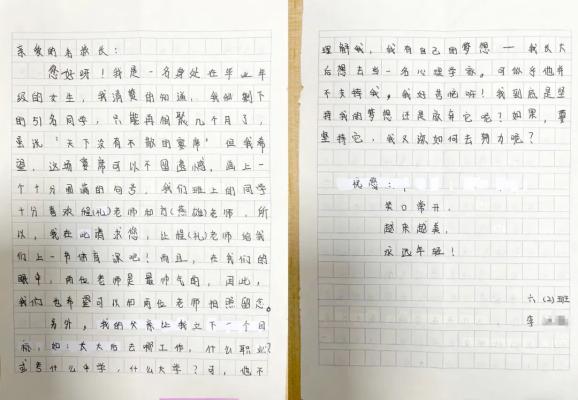 亲爱的名校长：
您好呀！我是一名身处在毕业年
级的女生，我清楚的知道，我和剩下
的51名同学，只能再相聚几个月了，
虽说“天下没有不散的宴席”但我希
望，这场宴席可以不留遗憾，画上一
个十分圆满的句号，我们班上的同学
十分喜欢程(礼)老师和方(燕雄)老师，所
以，我在此请求您，让程(礼)老师给我
们上一节体育课吧！而且，在我们的
眼中，两位老师是最帅气的，因此，
我们也希望可以和两位老师拍照留念。
另外，我的父亲让我立下一个目
标，如：长大后去哪工作，什么职业？
或考什么中学，什么大学？可，他不
理解我，我有自己的梦想——我长大
后想去当一名心理学家。可似乎他并
不支持我。我好苦恼呀！我到底是坚
持我的梦想还是放弃它呢？如果，要
坚持它，我又该如何去努力呢？
祝您：
笑口常开，
越来越美，
永远年轻！
六(2)班
李